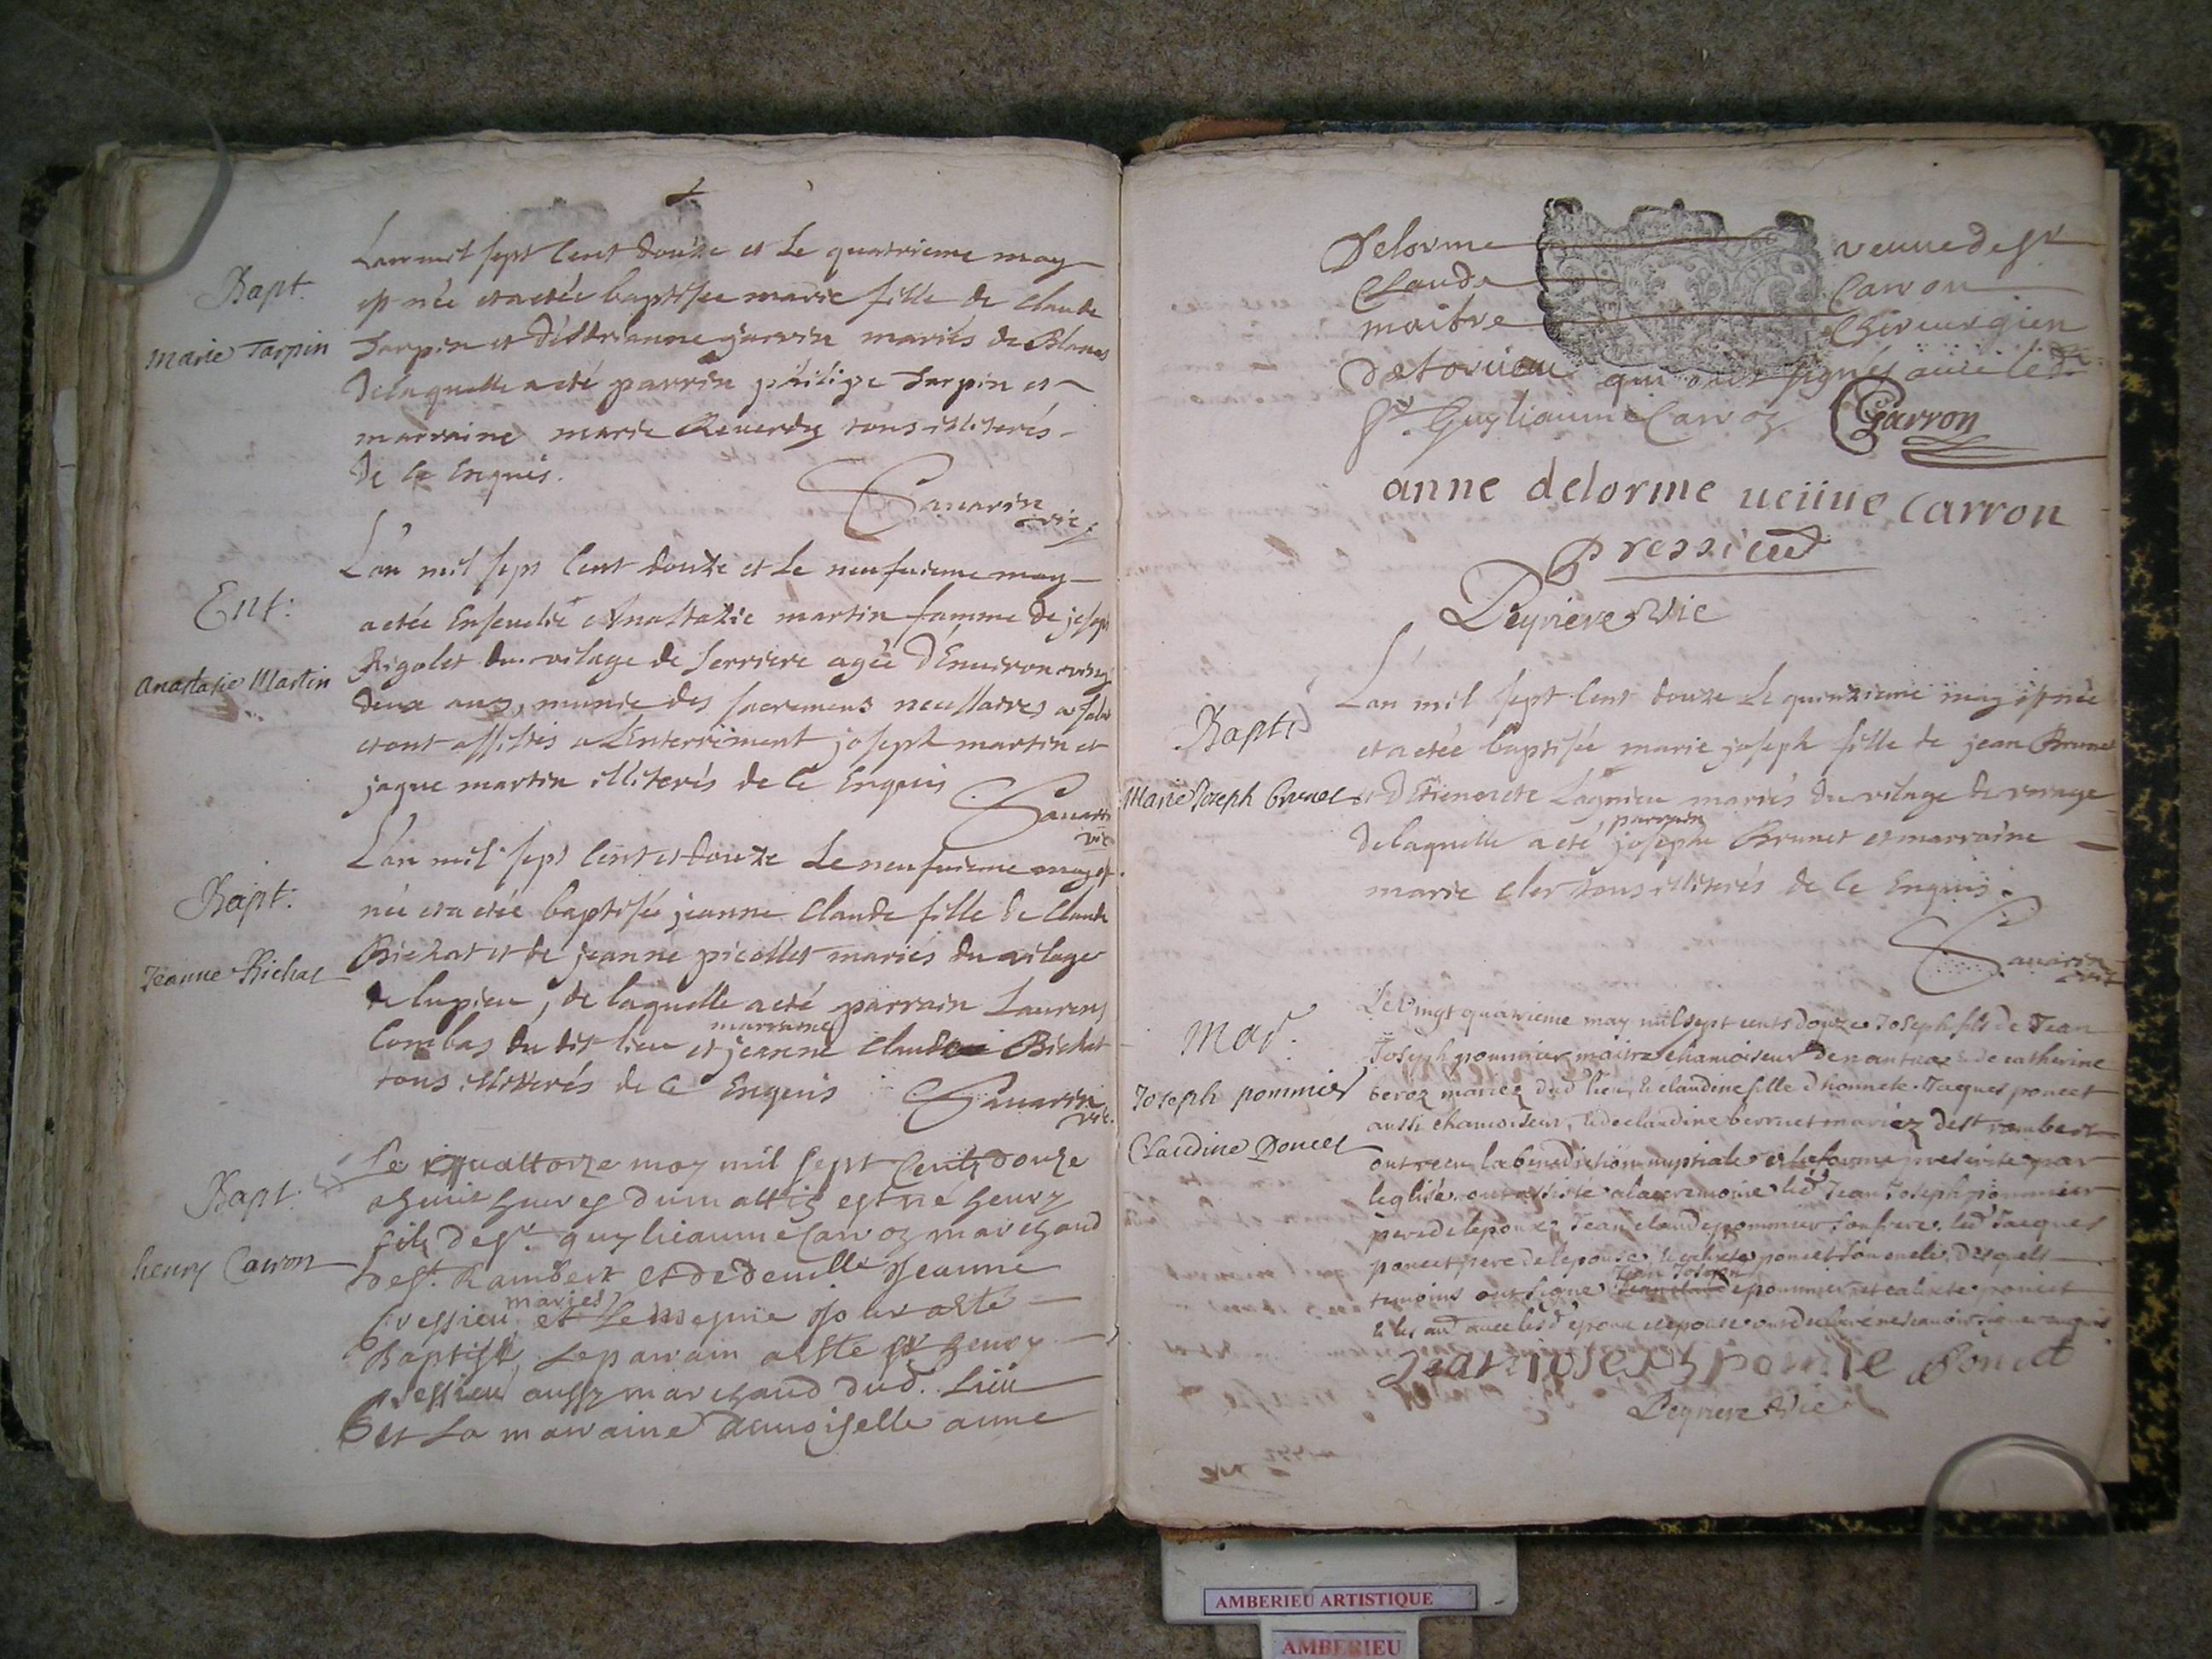 Bapt.
Marie Tarpin
Lan mil sept Cent douze et Le quatrieme may
est née et a etée baptisée marie fille de Claude
Tarpin et d'Estrianne guerin mariés de Blanas
de laquelle a eté parrin philipe Tarpin et
marraine marie Reverdy tous illiterés
de ce Enquis.
Savarin
vic.
Ent:
Anastasie Martin
L'an mil sept Cent douze et Le neufvieme may
a etée Ensevelie Anastazie martin famme de joseph
Rigolet du vilage de Serriere agée d'Environ vingt
deux ans, munie des sacremens necessaires a salut
et ont assistés a L'enterriment joseph martin et
jaque martin illiterés de Ce Enquis
Savarin
vic
Bapt:
Jeanne Bichat
L'an mil sept Cent et douze Le neufvieme may est
née et a etée baptisée jeanne Claude fille de Claude
Bichat et de jeanne picollet mariés du vilage
de lupieu, de laquelle a eté parrain Laurens
marraine
Combas du dit lieu et jeanne Claude Bichat
tous illiterés de Ce Enquis
Savarin
vic.
Bapt.
henry Carron
Le quattorze may mil sept Centz douze
heures du mattin est né henry
filz de Sr. guyllaume Carron marchand
de St. Rambert et de deville Jeanne
mariés
Pressieu et Le mesme jour a esté
Baptisé, Le parain a esté Sr henry
Pressieu aussy marchand dud. Lieu
Et La maraine demoiselle anne
Delorme veuve de Sr
Claude Carron
maitre Chirurgien
de torcieu qui ont signés avec led.
Sr. Guylliaume Carron
Carron
anne delorme ueiiue carron
Pressieu
Deyriere Vic
Bapt.
Marie Joseph Brunet
L'an mil sept Cent douze Le quinzieme may est née
et a etée baptisée marie joseph fille de jean Brunet
et d'Etienette Lagnieu mariés du vilage de vorage
parrain
de laquelle a eté joseph Brunet et marraine
marie cler tous illiterés de Ce Enquis.
Savarin
vic
Mar.
Joseph pommier
Claudine Poncet
Le Vingt quatrieme may mil sept cents douze Joseph fils de Jean
Joseph pommier maitre chamoiseur de nantua & de catherine
beroz mariez dud lieu, & claudine fille d honnete Jacques poncet
aussi chamoiseur, & de claudine berruet mariéz de St rambert
ont receu la benediction nuptiale en la forme prescrite par
leglise. ont assisté a la ceremonie led Jean Joseph pommier
pere de lepoux, Jean claude pommier son frere, led Jacques
poncet pere de lepouse, & calixte poncet son oncle, desquels
Jean Joseph
temoins ont signé Jean claude pommier, et calixte poncet
& les aud avec lesd epoux et epouse ont declaré ne scavoir signer enquis
Jean ioseph pomie Poncet
Deyriere Vic
AMBERIEU ARTISTIQUE
AMBERIEU